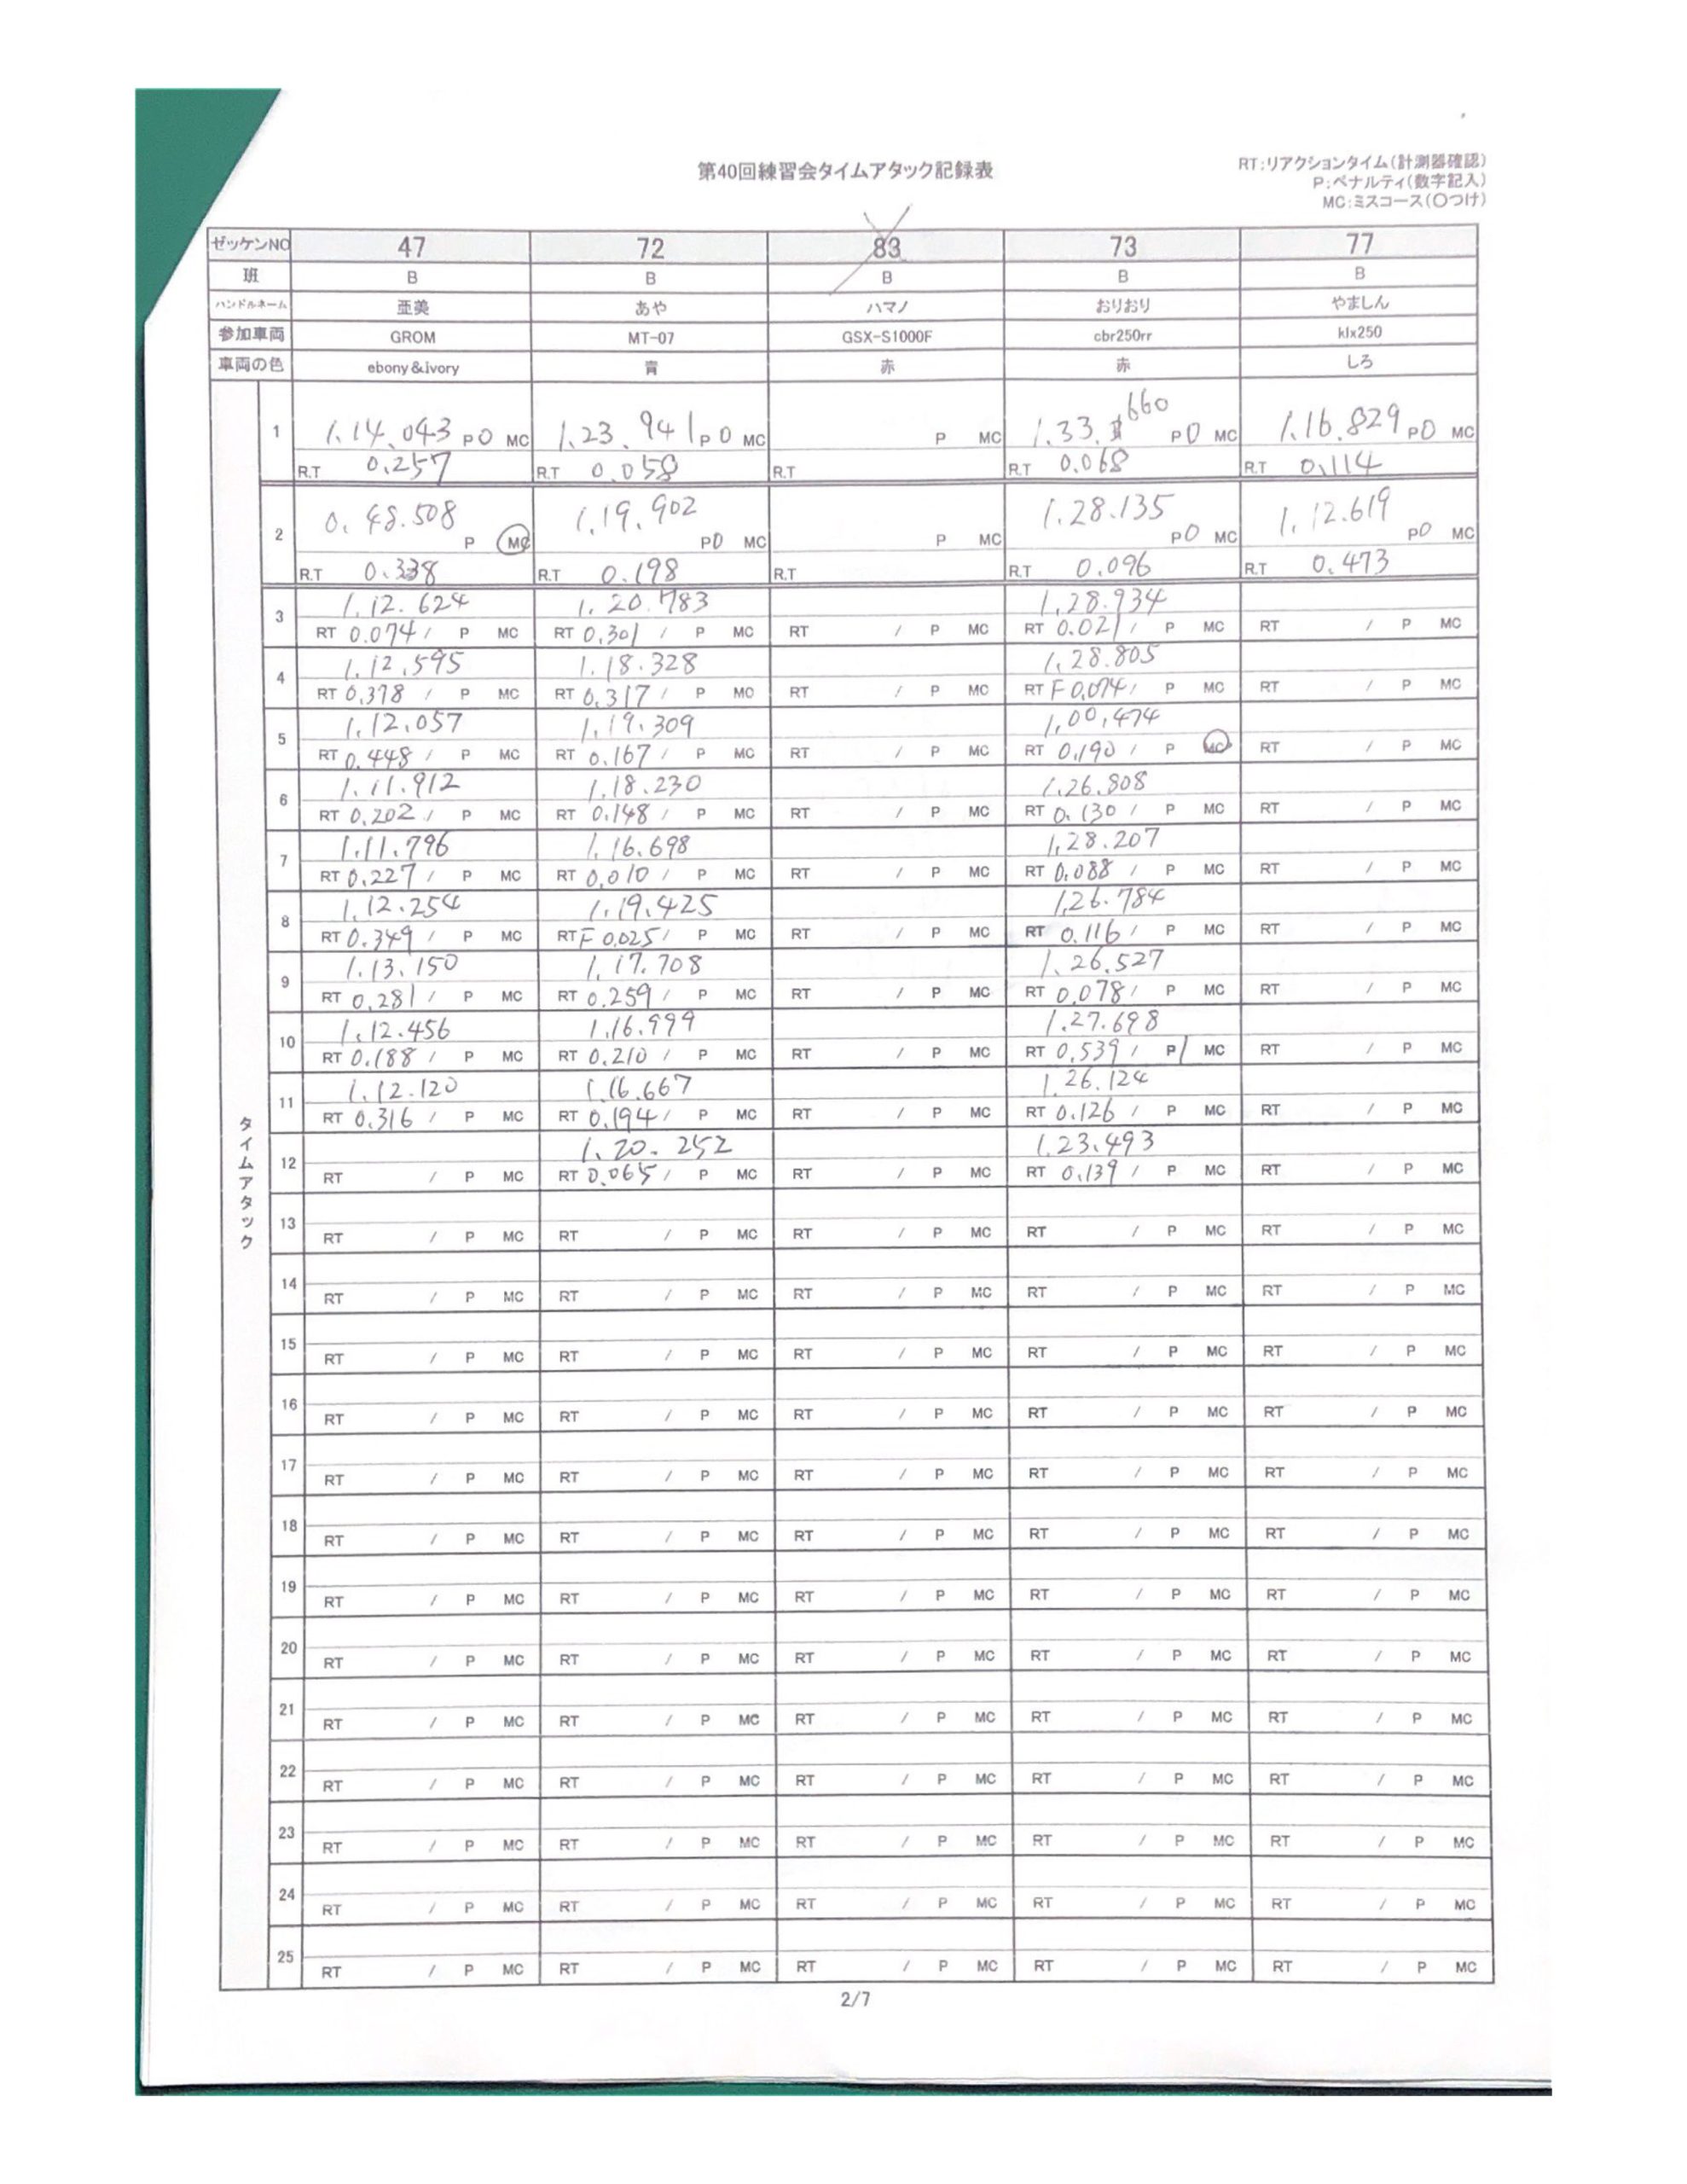 第40回練習会タイムアタック記録表
RT:リアクションタイム(計測器確認)
P:ペナルティ(数字記入)
MC:ミスコース(〇つけ)
ゼッケンNO 47 72 83 73 77
班 B B B B B
ハンドルネーム 亜美 あや ハマノ おりおり やましん
参加車両 GROM MT-07 GSX-S1000F cbr250rr klx250
車両の色 ebony&ivory 青 赤 赤 しろ
タイムアタック
1 1.14.043 P 0 MC 1.23.941 P 0 MC P MC 1.33.660 P 0 MC 1.16.829 P 0 MC
R.T 0.257 R.T 0.058 R.T R.T 0.068 R.T 0.114
2 0.48.508 P MC 1.19.902 P 0 MC P MC 1.28.135 P 0 MC 1.12.619 P 0 MC
R.T 0.338 R.T 0.198 R.T R.T 0.096 R.T 0.473
3 1.12.624 1.20.783 1.28.934
RT 0.074 / P MC RT 0.301 / P MC RT / P MC RT 0.021 / P MC RT / P MC
4 1.12.595 1.18.328 1.28.805
RT 0.378 / P MC RT 0.317 / P MC RT / P MC RT F 0.074 / P MC RT / P MC
5 1.12.057 1.19.309 1.00.474
RT 0.448 / P MC RT 0.167 / P MC RT / P MC RT 0.190 / P MC RT / P MC
6 1.11.912 1.18.230 1.26.808
RT 0.202 / P MC RT 0.148 / P MC RT / P MC RT 0.130 / P MC RT / P MC
7 1.11.796 1.16.698 1.28.207
RT 0.227 / P MC RT 0.010 / P MC RT / P MC RT 0.088 / P MC RT / P MC
8 1.12.254 1.19.425 1.26.784
RT 0.349 / P MC RT F 0.025 / P MC RT / P MC RT 0.116 / P MC RT / P MC
9 1.13.150 1.17.708 1.26.527
RT 0.281 / P MC RT 0.259 / P MC RT / P MC RT 0.078 / P MC RT / P MC
10 1.12.456 1.16.999 1.27.698
RT 0.188 / P MC RT 0.210 / P MC RT / P MC RT 0.539 / P 1 MC RT / P MC
11 1.12.120 1.16.667 1.26.124
RT 0.316 / P MC RT 0.194 / P MC RT / P MC RT 0.126 / P MC RT / P MC
12 1.20.252 1.23.493
RT / P MC RT 0.065 / P MC RT / P MC RT 0.139 / P MC RT / P MC
13
RT / P MC RT / P MC RT / P MC RT / P MC RT / P MC
14
RT / P MC RT / P MC RT / P MC RT / P MC RT / P MC
15
RT / P MC RT / P MC RT / P MC RT / P MC RT / P MC
16
RT / P MC RT / P MC RT / P MC RT / P MC RT / P MC
17
RT / P MC RT / P MC RT / P MC RT / P MC RT / P MC
18
RT / P MC RT / P MC RT / P MC RT / P MC RT / P MC
19
RT / P MC RT / P MC RT / P MC RT / P MC RT / P MC
20
RT / P MC RT / P MC RT / P MC RT / P MC RT / P MC
21
RT / P MC RT / P MC RT / P MC RT / P MC RT / P MC
22
RT / P MC RT / P MC RT / P MC RT / P MC RT / P MC
23
RT / P MC RT / P MC RT / P MC RT / P MC RT / P MC
24
RT / P MC RT / P MC RT / P MC RT / P MC RT / P MC
25
RT / P MC RT / P MC RT / P MC RT / P MC RT / P MC
2/7